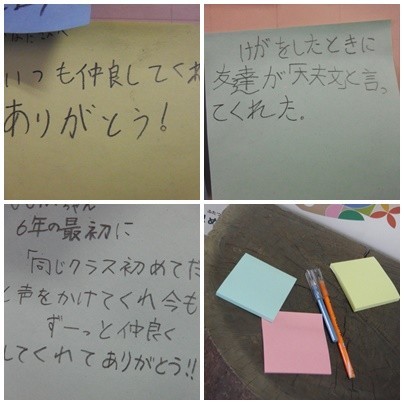 いつも仲良してくれ
ありがとう！
けがをしたときに
友達が「大丈夫」と言っ
てくれた。
6年の最初に
「同じクラス初めてだ
と声をかけてくれ今も
ずーっと仲良く
してくれてありがとう!!